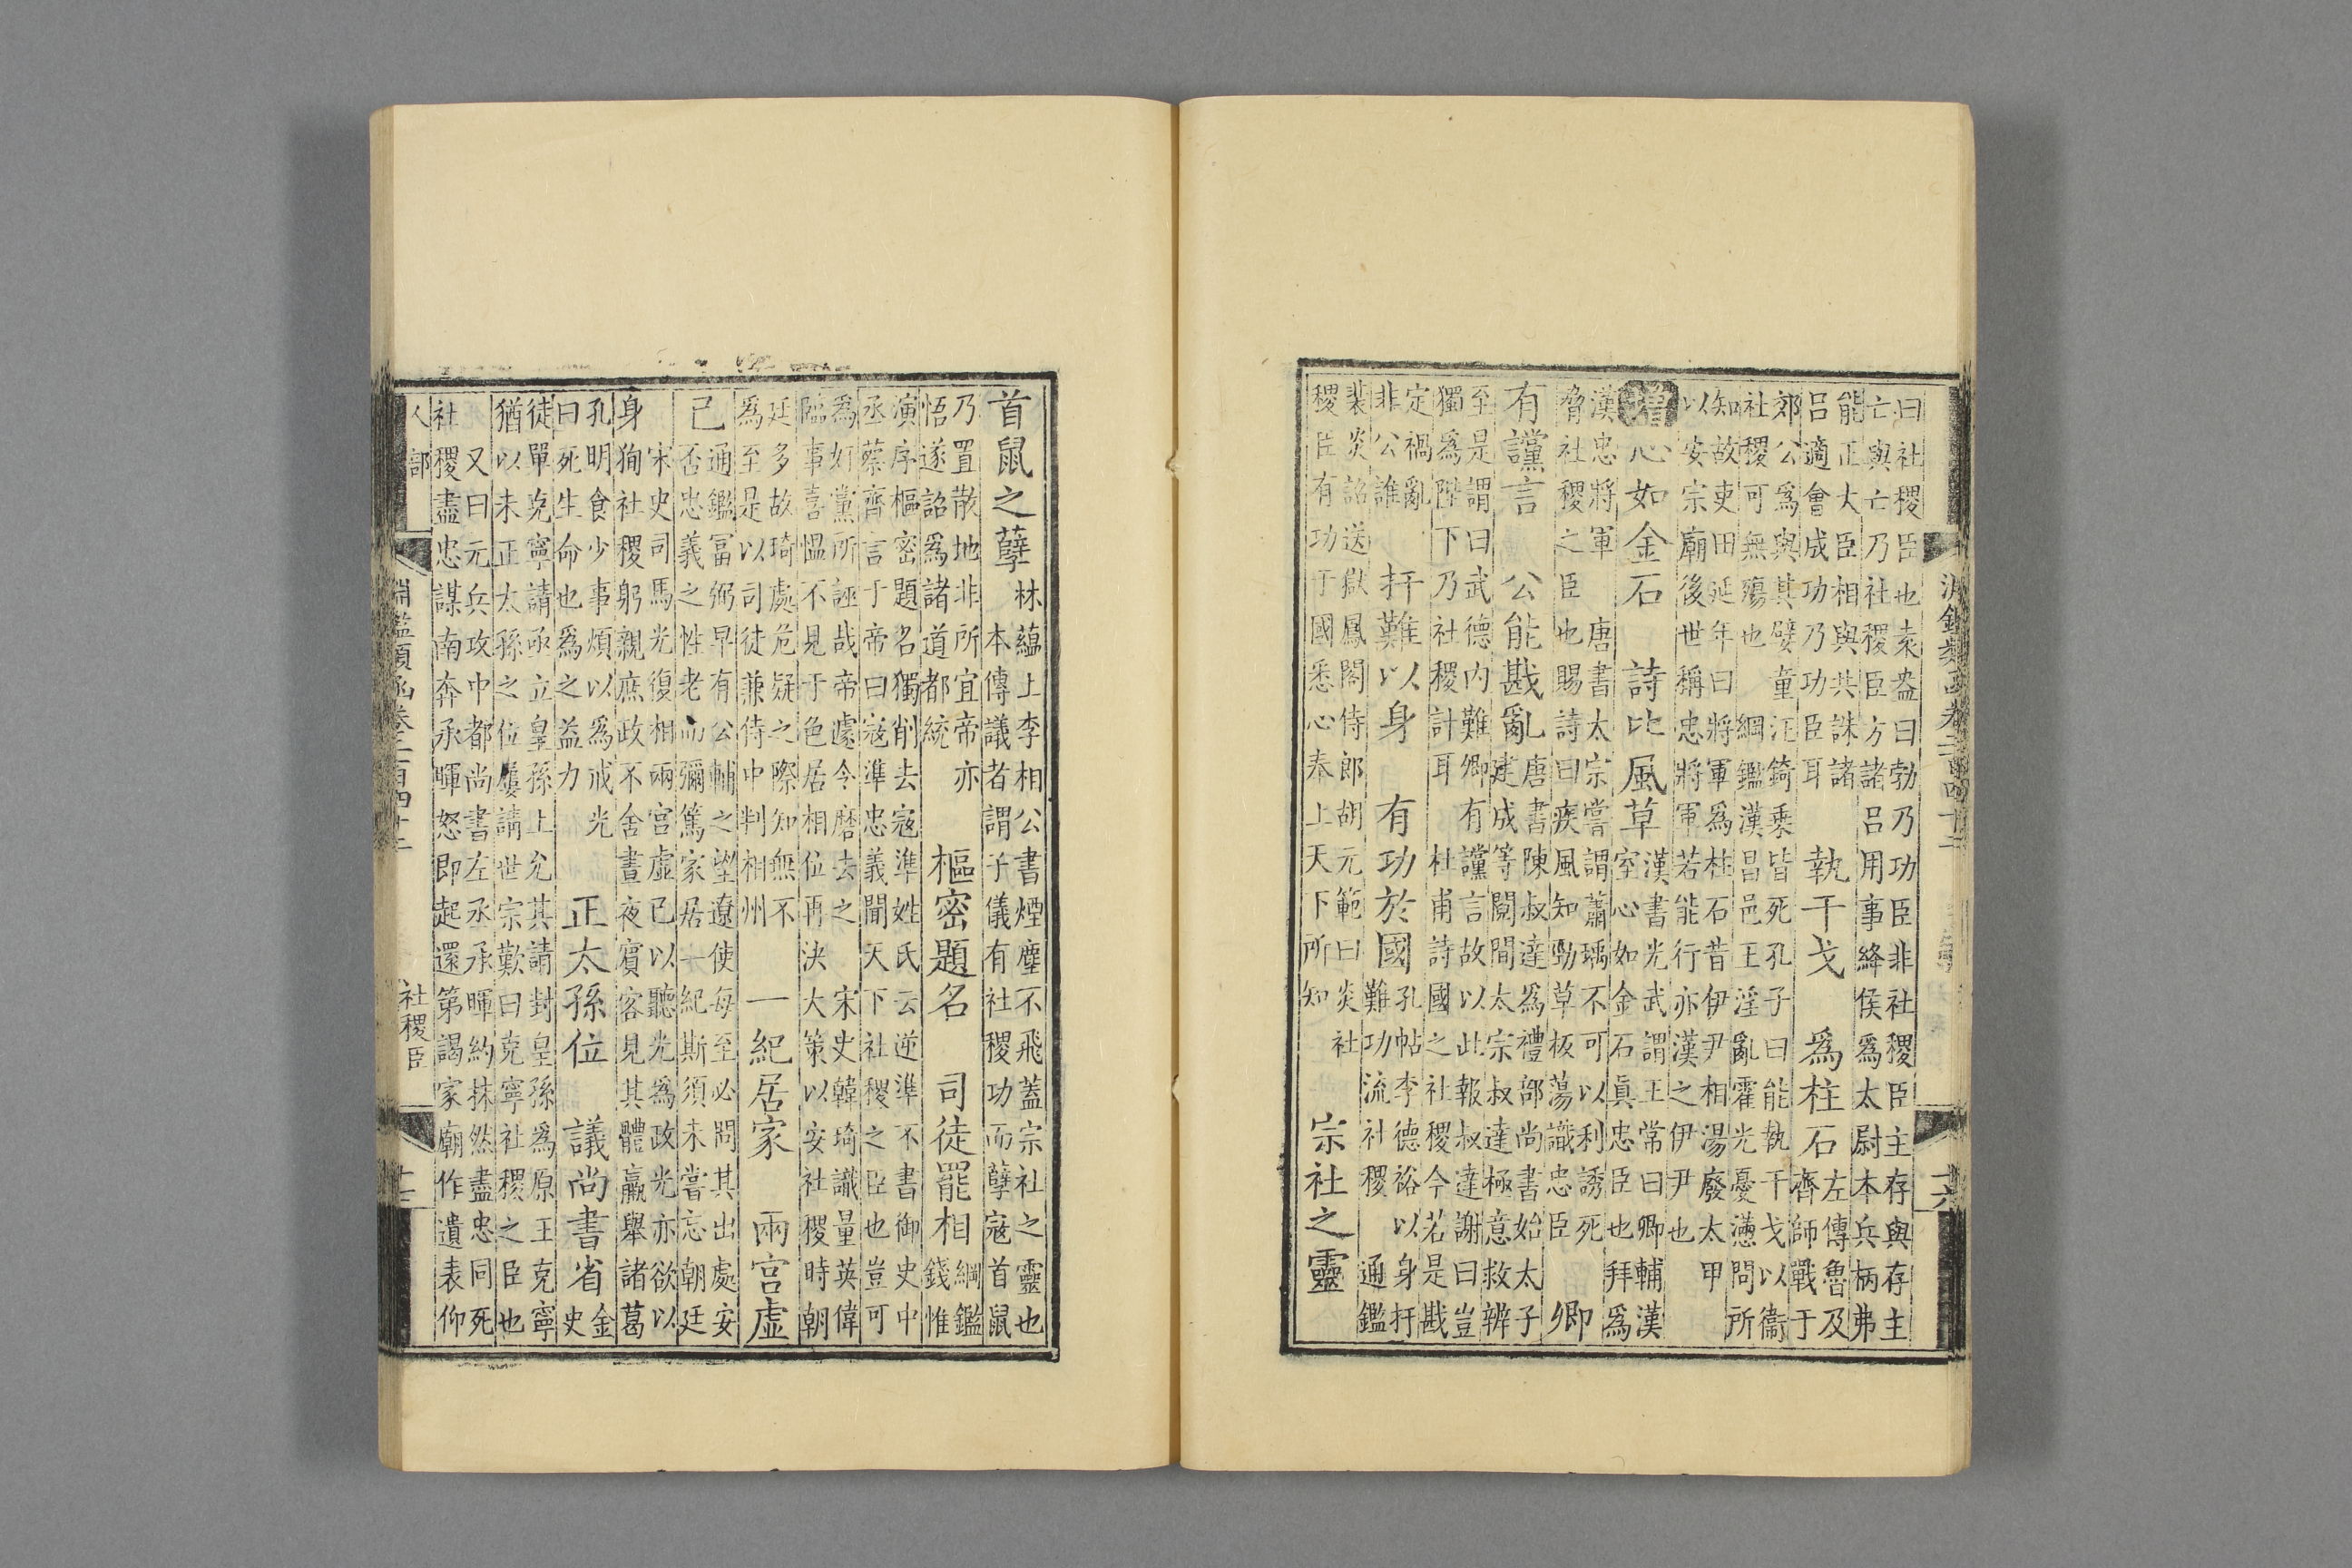 淵鑑類函卷二百四十二
十六
曰社稷臣也袁盎曰勃乃功臣非社稷臣主存與存主
亡與亡乃社稷臣方諸呂用事絳侯爲太尉本兵柄弗
能正大臣相與共誅諸
呂適會成功乃功臣耳
執干戈 爲柱石
左傳魯及
齊師戰于
郊公爲與其嬖童汪錡乘皆死孔子曰能執干戈以衞
社稷可無殤也 綱鑑漢昌邑王淫亂霍光憂懣問所
知故吏田延年曰將軍爲柱石昔伊尹相湯廢太甲
以安宗廟後世稱忠將軍若能行亦漢之伊尹也
增心如金石 詩比風草
漢書光武謂王常曰卿輔漢
室心如金石眞忠臣也拜爲
漢忠將軍 唐書太宗嘗謂蕭瑀不可以利誘死
脅社稷之臣也賜詩曰疾風知勁草板蕩識忠臣
卿
有讜言 公能戡亂
唐書陳叔達爲禮部尚書始太子
建成等鬩間太宗叔達極意救辨
至是謂曰武德內難卿有讜言故以此報叔達謝曰豈
獨爲陛下乃社稷計耳 杜甫詩國之社稷今若是戡
定禍亂
非公誰
扞難以身 有功於國
孔帖李德裕以身扞
難功流社稷 通鑑
裴炎詔送獄鳳閣侍郎胡元範曰炎社
稷臣有功于國悉心奉上天下所知
宗社之靈
首鼠之孽
林蘊上李相公書煙塵不飛蓋宗社之靈也
本傳議者謂子儀有社稷功而孽寇首鼠
乃置散地非所宜帝亦
悟遂詔爲諸道都統
樞密題名 司徒罷相
綱鑑
錢惟
演序樞密題名獨削去寇準姓氏云逆準不書御史中
丞蔡齊言于帝曰寇準忠義聞天下社稷之臣也豈可
爲奸黨所誣哉帝遽令磨去之 宋史韓琦識量英偉
臨事喜慍不見于色居相位再決大策以安社稷時朝
廷多故琦處危疑之際知無不
爲至是以司徒兼侍中判相州
一紀居家 兩宮虛
己
通鑑冨弼早有公輔之望遼使每至必問其出處安
否忠義之性老而彌篤家居一紀斯須未嘗忘朝廷
宋史司馬光復相兩宮虛已以聽光爲政光亦欲以
身狥社稷躬親庶政不舍晝夜賓客見其體羸舉諸葛
孔明食少事煩以爲戒光
曰死生命也爲之益力
正太孫位 議尚書省
金
史
徒單克寧請亟立皇孫上允其請封皇孫爲原王克寧
猶以未正太孫之位屢請世宗歎曰克寧社稷之臣也
又曰元兵攻中都尚書左丞承暉約抹然盡忠同死
社稷盡忠謀南奔承暉怒即起還第謁家廟作遺表仰
人部
淵鑑類函卷二百四十二
社稷臣